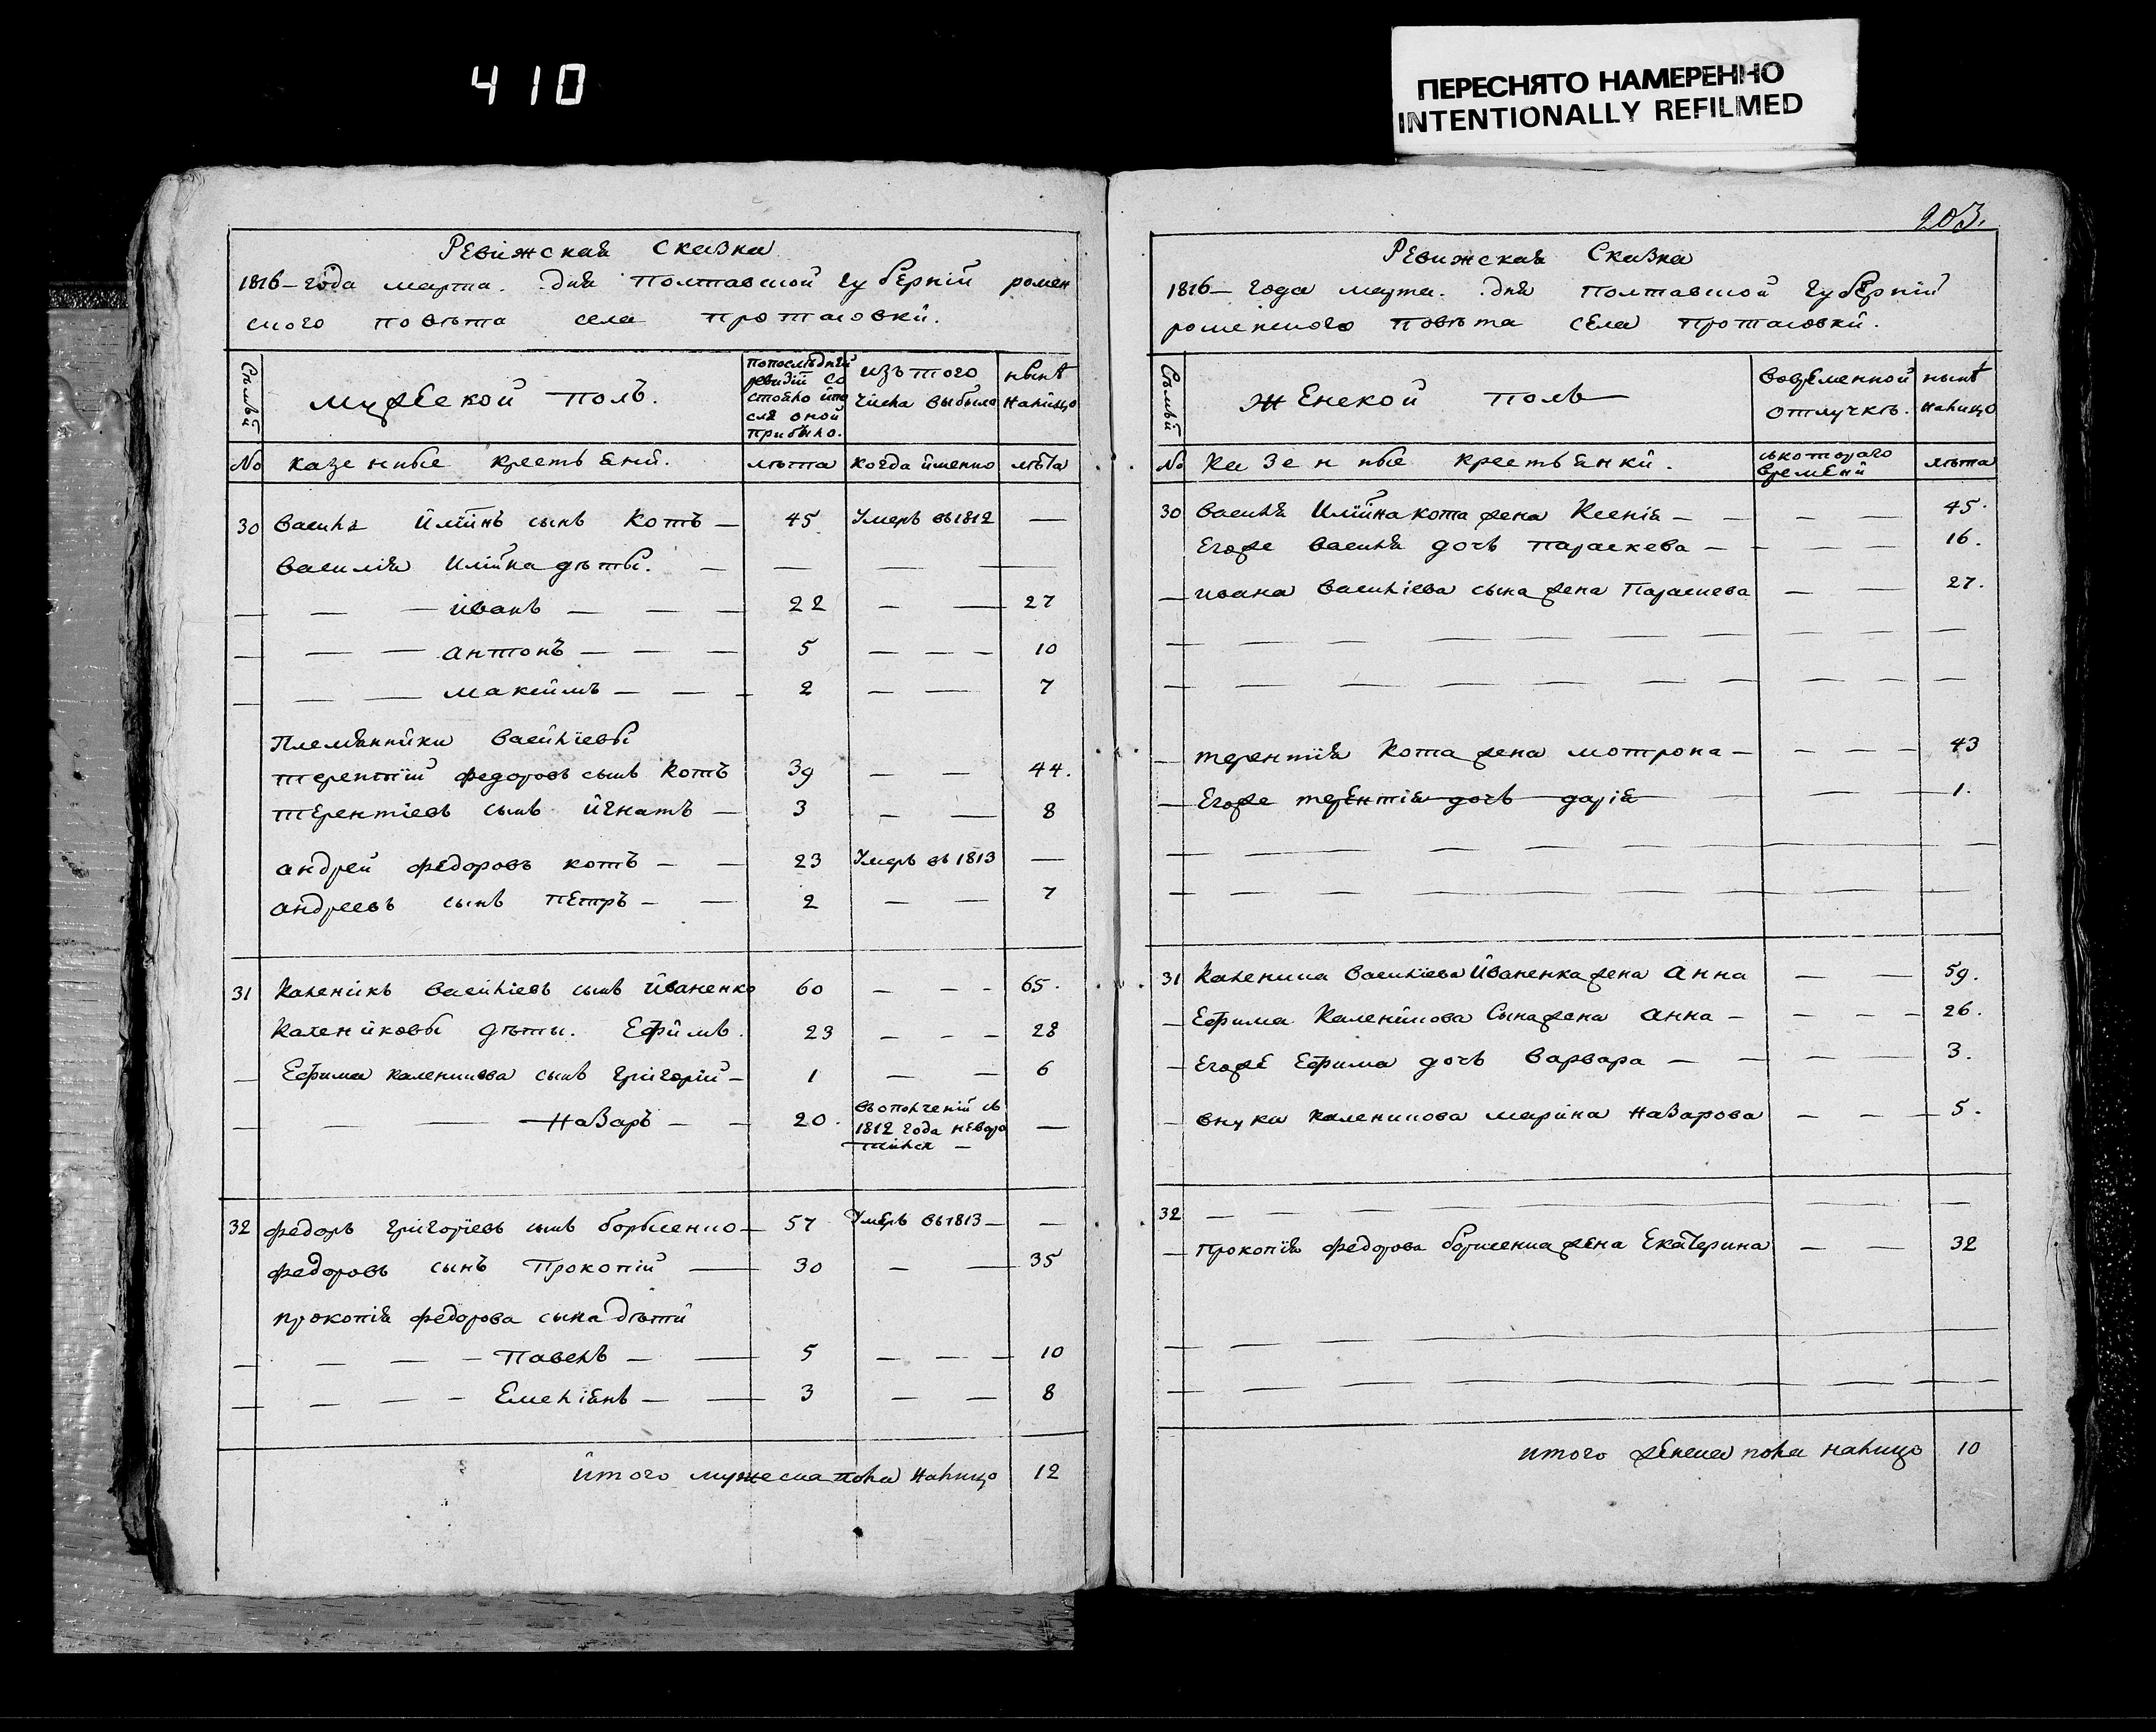 410
ПЕРЕСНЯТО НАМЕРЕННО
INTENTIONALLY REFILMED
203.
Ревижская Сказка
1816 – года марта. дня Полтавской губернїй ромен
ского повѣта села протасовки.
Сѣмьй
мужеской полъ.
попослѣдней ревизїй со стояло йпо слѣ оной прибыло.
изътого числа выбыло
нынѣ налицо
№ казенные крестьяни.
лѣта
когда йменно
лѣта
30 василь йлїинъ сынъ котъ — 45 Умеръ въ1812 —
василїя илїина дѣты. — — — —
— — — йванъ — — — 22 — — 27
— — — антонъ — — — 5 — — — 10
— — — максймъ — — — 2 — — 7
Племянники васйлїевы
терентїй федоровъ сынъ котъ 39 — — 44.
терентїевъ сынъ йгнатъ — 3 — — 8
андрей федоровъ котъ — — 23 Умеръ въ 1813 —
андреевъ сынъ петръ — — 2 — — 7
31 каленикъ васйлїевъ сынъ йваненко 60 — — — 65.
каленйковы дѣты. Ефймъ. 23 — — — 28
— Ефима каленикова сынъ григорїй — 1 — — 6
— — — назаръ — — 20. въополченїй съ 1812 года невозвратился — —
32 федоръ григорїевъ сынъ борысенко — 57 Умеръ въ1813 — —
федоровъ сынъ Прокопїй — 30 — — 35
прокопїя федорова сына дѣти
— — — — павелъ — — 5 — — — 10
— — — — Емелїянъ — — 3 — — 8
йтого мужеска пола налицо 12
Ревижская Сказка
1816 – года марта. дня полтавской губернїй
роменского повѣта села протасовки.
Сѣмьй
женской полъ
вовременной отлучкѣ.
нынѣ налицо
№ казенные крестьянкй.
съкотораго времени
лѣта
30 василя илїина кота жена ксенїя — — — — 45.
Егоже василя дочь параскева — — — — 16.
— ивана василїева сына жена Параскева — — 27.
— терентїя кота жена мотрона — — — — 43
— Егоже терентїя дочь дарїя — — — 1.
31 каленика василїева йваненка жена анна — — 59.
— Ефима каленикова сына жена анна — — — — 26.
— Егоже Ефима дочь варвара — — — — 3.
— внука каленикова марина назарова — — — 5.
32 — — — — — — — —
— прокопїя федорова борисенка жена Екатерина — — 32
итого женска пола налицо 10